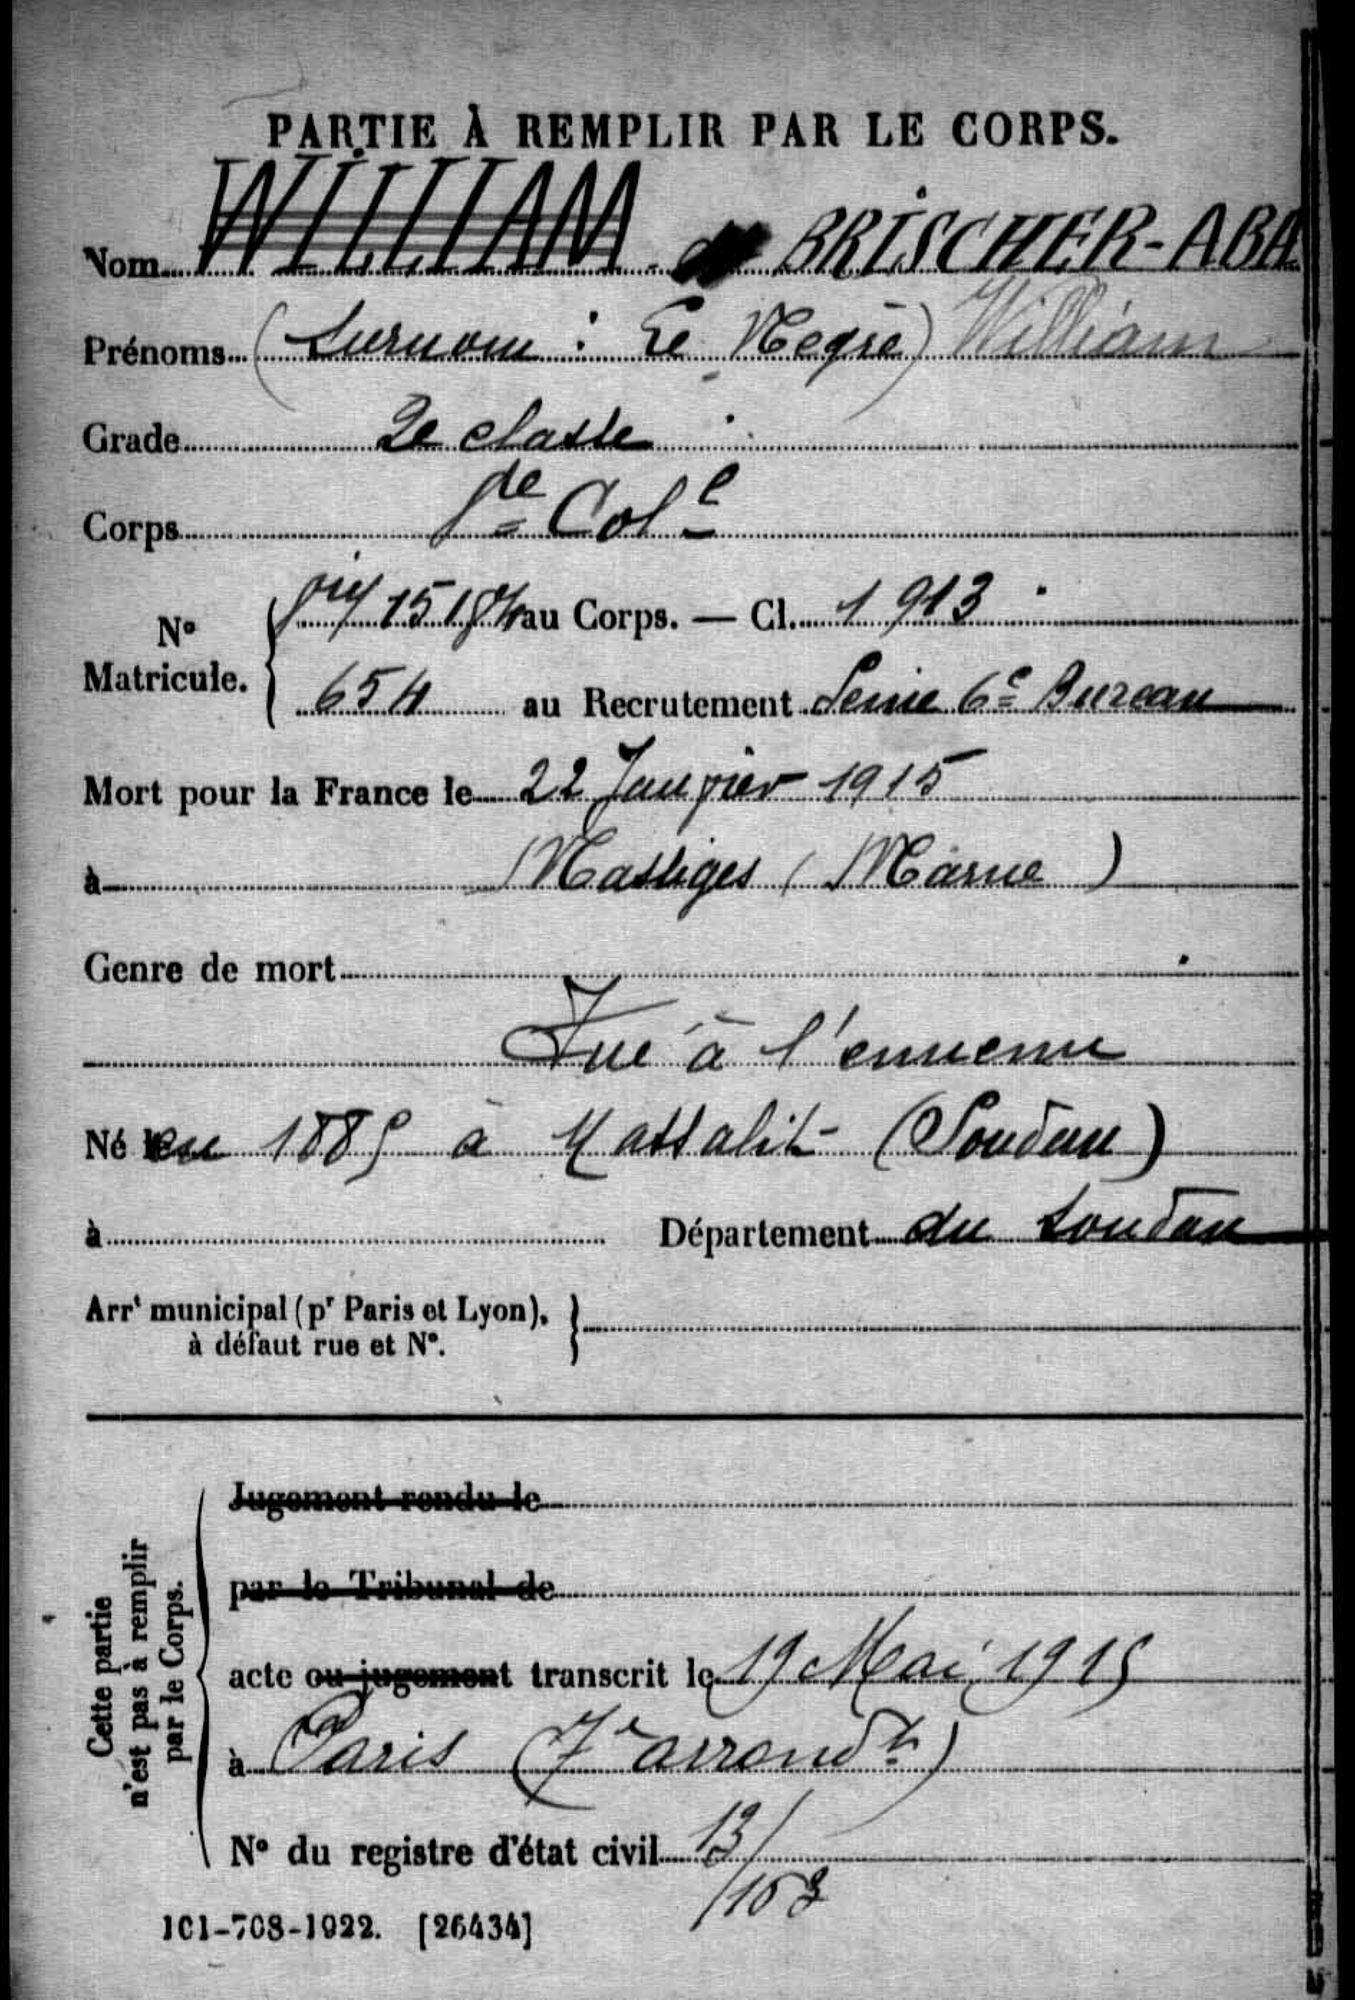 PARTIE À REMPLIR PAR LE CORPS.
Nom WILLIAM BRISCHER-ABA
Prénoms (surnom : Le Negre) William
Grade 2e classe
Corps Col e
Nº Matricule. 15184 au Corps. — Cl. 1913
654 au Recrutement Seine 6e Bureau
Mort pour la France le 22 Janvier 1915
à Massiges (Marne)
Genre de mort
Tué à l'ennemi
Né en 1885 à Massalit (Soudan)
à Département du Soudan
Arrt municipal (pr Paris et Lyon),
à défaut rue et Nº.
Cette partie
n'est pas à remplir
par le Corps.
Jugement rendu le
par le Tribunal de
acte ou jugement transcrit le 19 Mai 1915
à Paris (7e arrondt)
Nº du registre d'état civil 13/
/163
101-708-1922. [26434]